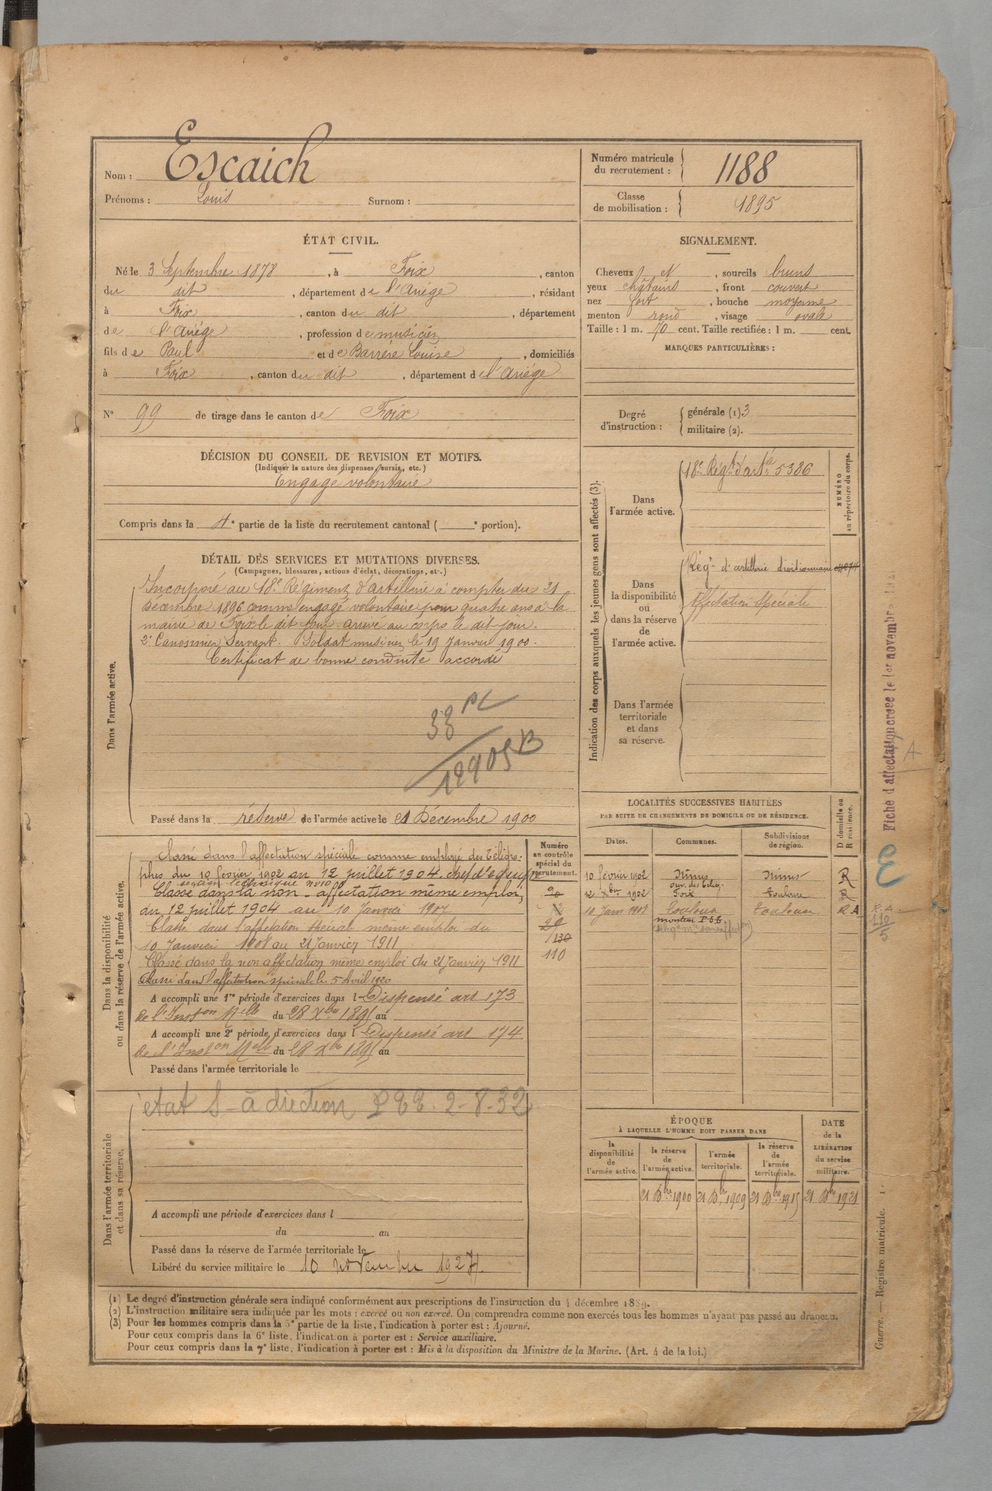 Nom : Escaich
Prénoms : Louis Surnom :
Numéro matricule du recrutement : 1188
Classe de mobilisation : 1895
ÉTAT CIVIL.
Né le 3 Septembre 1878, à Foix, canton
du dit, département de l'Ariège, résidant
à Foix, canton du dit, département
de l'Ariège, profession de musicien
fils de Paul et de Barrère Louise, domiciliés
à Foix, canton du dit, département de l'Ariège
N° 99 de tirage dans le canton de Foix
SIGNALEMENT.
Cheveux et, sourcils bruns
yeux châtains, front couvert
nez fort, bouche moyenne
menton rond, visage ovale
Taille : 1 m. 70 cent. Taille rectifiée : 1 m. cent.
MARQUES PARTICULIÈRES :
Degré d'instruction : générale (1) 3
militaire (2).
DÉCISION DU CONSEIL DE REVISION ET MOTIFS.
(Indiquer la nature des dispenses, sursis, etc.)
Engagé volontaire
Compris dans la 4e partie de la liste du recrutement cantonal ( e portion).
DÉTAIL DES SERVICES ET MUTATIONS DIVERSES.
(Campagnes, blessures, actions d'éclat, décorations, etc.)
Dans l'armée active.
Incorporé au 18e Régiment d'artillerie à compter du 21
décembre 1896 comme engagé volontaire pour quatre ans à la
mairie de Foix le dit jour. arrivé au corps le dit jour.
2e Canonnier Servant. Soldat musicien le 19 Janvier 1900.
Certificat de bonne conduite accordé
Passé dans la réserve de l'armée active le 21 Décembre 1900
Indication des corps auxquels les jeunes gens sont affectés (3).
NUMÉRO au répertoire du corps.
Dans l'armée active.
18e Régt d'artie 5386
Dans la disponibilité ou dans la réserve de l'armée active.
Régt d'artillerie divisionnaire
Affectation Spéciale
Dans l'armée territoriale et dans sa réserve.
Dans la disponibilité ou dans la réserve de l'armée active.
Numéro au contrôle spécial du recrutement.
Classé dans l'affectation spéciale comme employé des télégra-
phes du 10 février 1902 au 12 juillet 1904. chef d'équipe
Classé dans la non-affectation même emploi,
du 12 juillet 1904 au 10 Janvier 1908
Classé dans l'affectation spéciale même emploi du
10 Janvier 1908 au 21 janvier 1911
Classé dans la non affectation même emploi du 21 janvier 1911
Classé dans l'affectation spéciale le 5 Avril 1920
110
A accompli une 1re période d'exercices dans l Dispensé art 173
de l'Inston Melle du 28 Xbre 1895 au
A accompli une 2e période d'exercices dans l Dispensé art 174
de l'Inston Melle du 28 Xbre 1895 au
Passé dans l'armée territoriale le
LOCALITÉS SUCCESSIVES HABITÉES
PAR SUITE DE CHANGEMENTS DE DOMICILE OU DE RÉSIDENCE.
Dates. Communes. Subdivisions de région. D domicile ou R résidence.
10 février 1902 Nîmes Nîmes R
1902 Foix Toulouse R
10 Janv 1908 Toulouse Toulouse R
Dans l'armée territoriale et dans sa réserve.
état S - à direction 2-8-32
A accompli une période d'exercices dans l
du au
Passé dans la réserve de l'armée territoriale le
Libéré du service militaire le 10 novembre 1927.
ÉPOQUE
À LAQUELLE L'HOMME DOIT PASSER DANS
la disponibilité de l'armée active. la réserve de l'armée active. l'armée territoriale. la réserve de l'armée territoriale. DATE de la LIBÉRATION du service militaire.
21 Dbre 1900 21 Dbre 1909 21 Dbre 1915 21 Dbre 1921
Fiche d'affectation créée le 1er novembre
Guerre. — Registre matricule.
(1) Le degré d'instruction générale sera indiqué conformément aux prescriptions de l'instruction du 4 décembre 1889.
(2) L'instruction militaire sera indiquée par les mots : exercé ou non exercé. On comprendra comme non exercés tous les hommes n'ayant pas passé au drapeau.
(3) Pour les hommes compris dans la 5e partie de la liste, l'indication à porter est : Ajourné.
Pour ceux compris dans la 6e liste, l'indication à porter est : Service auxiliaire.
Pour ceux compris dans la 7e liste, l'indication à porter est : Mis à la disposition du Ministre de la Marine. (Art. 4 de la loi.)